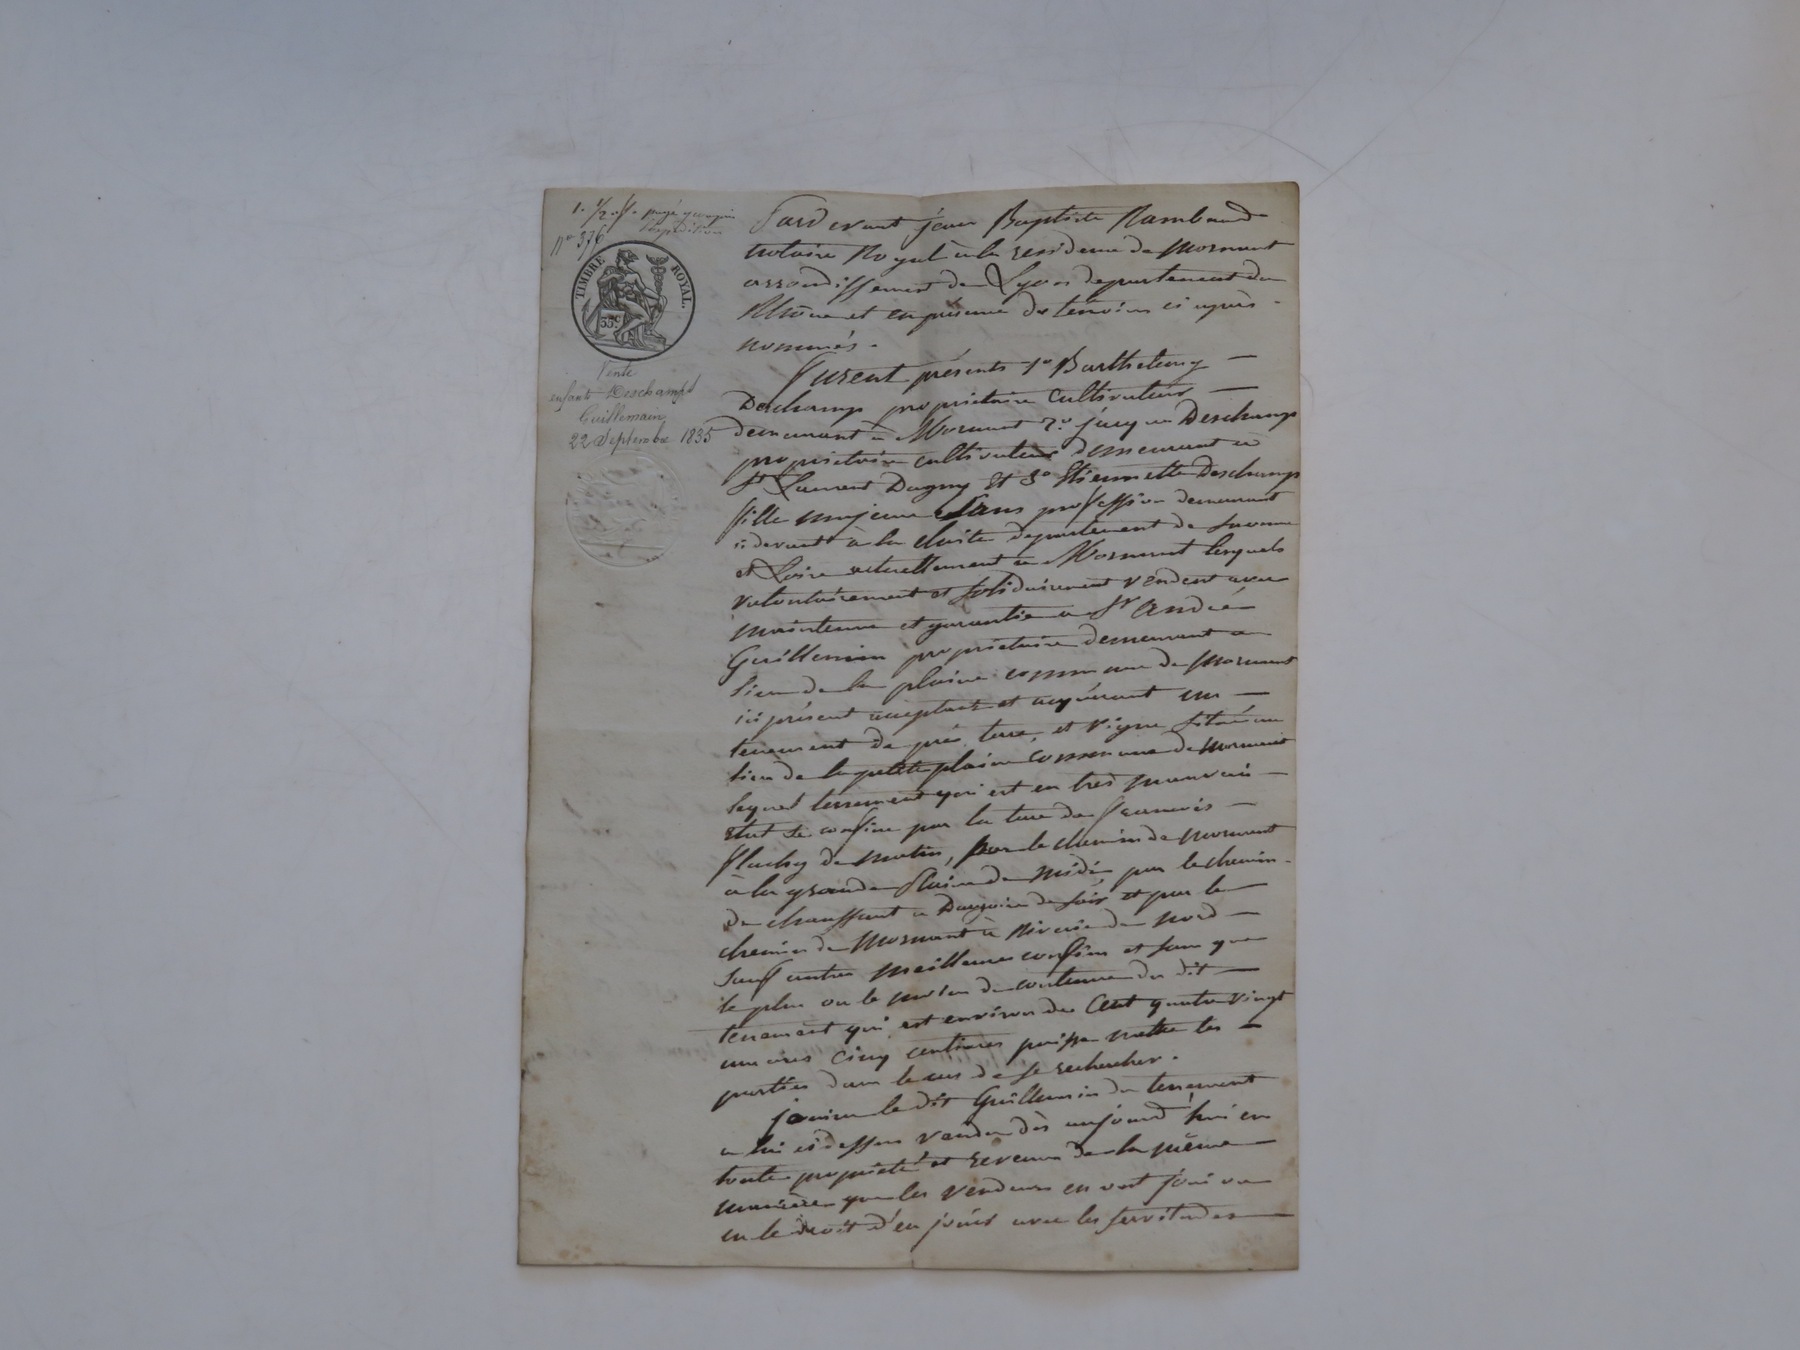 1. 1/2 f. payé
l'expédition
n° 376
TIMBRE ROYAL.
35c
Vente
enfants Deschamps
Guillemain
22 Septembre 1835
Pardevant jean Baptiste Rambaud
notaire Royal à la residence de Mornant
arrondissement de Lyon departement du
Rhône et en présence des temoins ci après
nommés.
Furent présents 1° Barthelemy
Deschamp propriétaire cultivateur
demeurant à Mornant 2° jacques Deschamp
propriétaire cultivateur demeurant à
St Laurent Dagny Et 3° Etiennette Deschamp
fille majeure Sans profession demeurant
ci devant à la departement de Saone
et Loire actuellement à Mornant lesquels
volontairement et solidairement vendent avec
maintenue et garantie a Sr André
Guillemin propriétaire demeurant au
lieu de la plaine commune de Mornant
ici présent acceptant et acquérant un
tenement de pré, terre, et vigne situé au
lieu de la petite plaine commune de Mornant
lequel tenement qui est en très mauvais
etat se confine par la terre de francois
flachy de matin, par le chemin de Mornant
à la grande Plaine de midi par le chemin
de chaussant a de soir et par le
chemin de Mornant à Riverie de nord
Sauf autres meilleurs confins et sans que
le plus ou le moins de contenue du dit
tenement qui est environ de Cent quatre vingt
un ares cinq centiares puisse mettre les
parties dans le cas de se rechercher.
jouira le dit Guillemin du tenement
a lui ci dessus vendu dès aujourd'hui en
toute propriété et revenu de la même
manière que les vendeurs en ont joui ou
eu le droit d'en jouir avec les servitudes